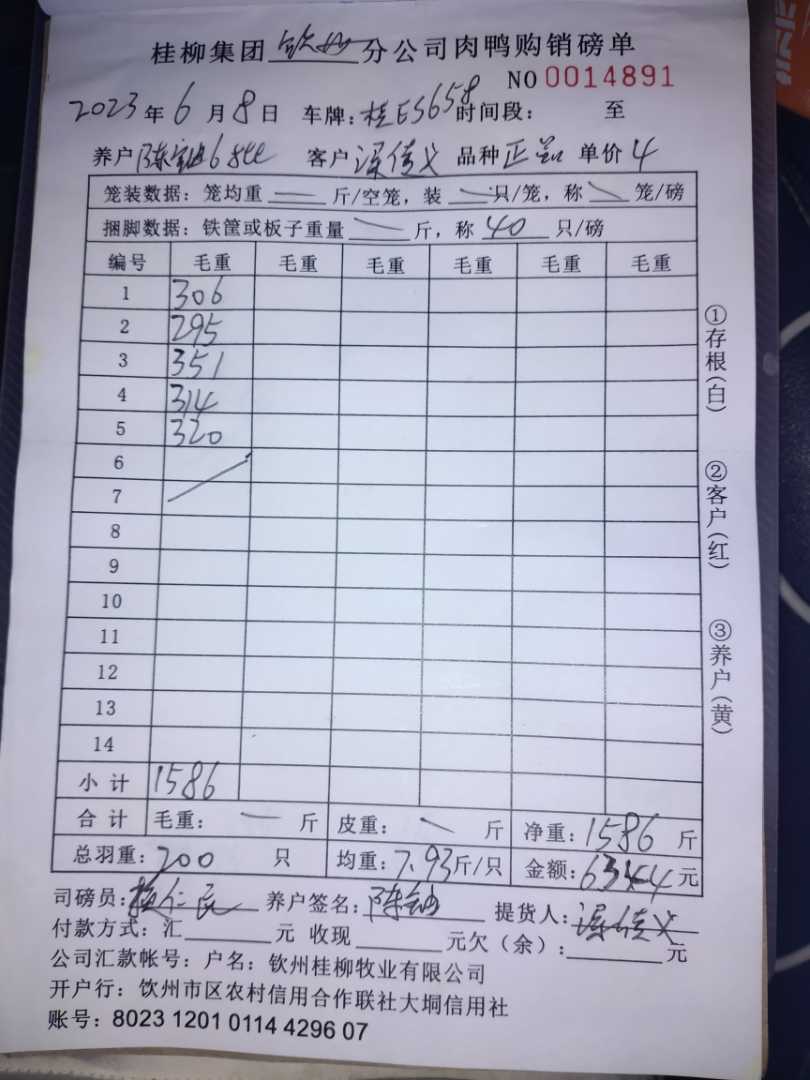 桂柳集团 钦州 分公司肉鸭购销磅单
NO 0014891
2023年6月8日 车牌:桂ES658 时间段: 至
养户 陈 客户 品种 正 单价 4
笼装数据:笼均重 — 斤/空笼,装 — 只/笼,称 — 笼/磅
捆脚数据:铁筐或板子重量 — 斤,称 40 只/磅
编号 毛重 毛重 毛重 毛重 毛重 毛重
1 306
2 295
3 351
4 314
5 320
6
7
8
9
10
11
12
13
14
小计 1586
合计 毛重: — 斤 皮重: — 斤 净重:1586 斤
总羽重:200 只 均重:7.93斤/只 金额:6344元
司磅员: 养户签名:陈 提货人:
付款方式:汇 元 收现 元欠(余): 元
公司汇款帐号:户名:钦州桂柳牧业有限公司
开户行:饮州市区农村信用合作联社大垌信用社
账号:8023 1201 0114 4296 07
①存根(白)
②客户(红)
③养户(黄)